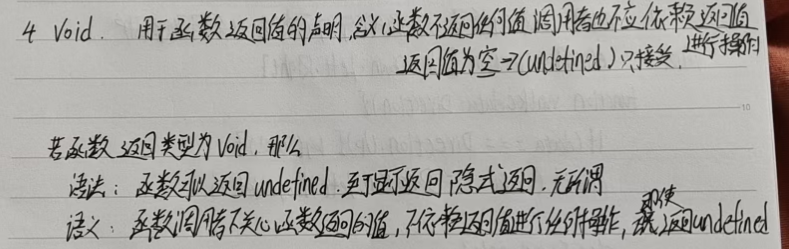 4 Void. 用于函数返回值的声明,含义:函数不返回任何值 调用者也不应依赖返回值进行操作
返回值为空→(undefined)只接受.
若函数返回类型为Void.那么
语法:函数可以返回undefined.至于显示返回 隐式返回.无所谓
语义:函数调用者不关心函数返回的值,不依赖返回值进行任何操作,即使返回undefined